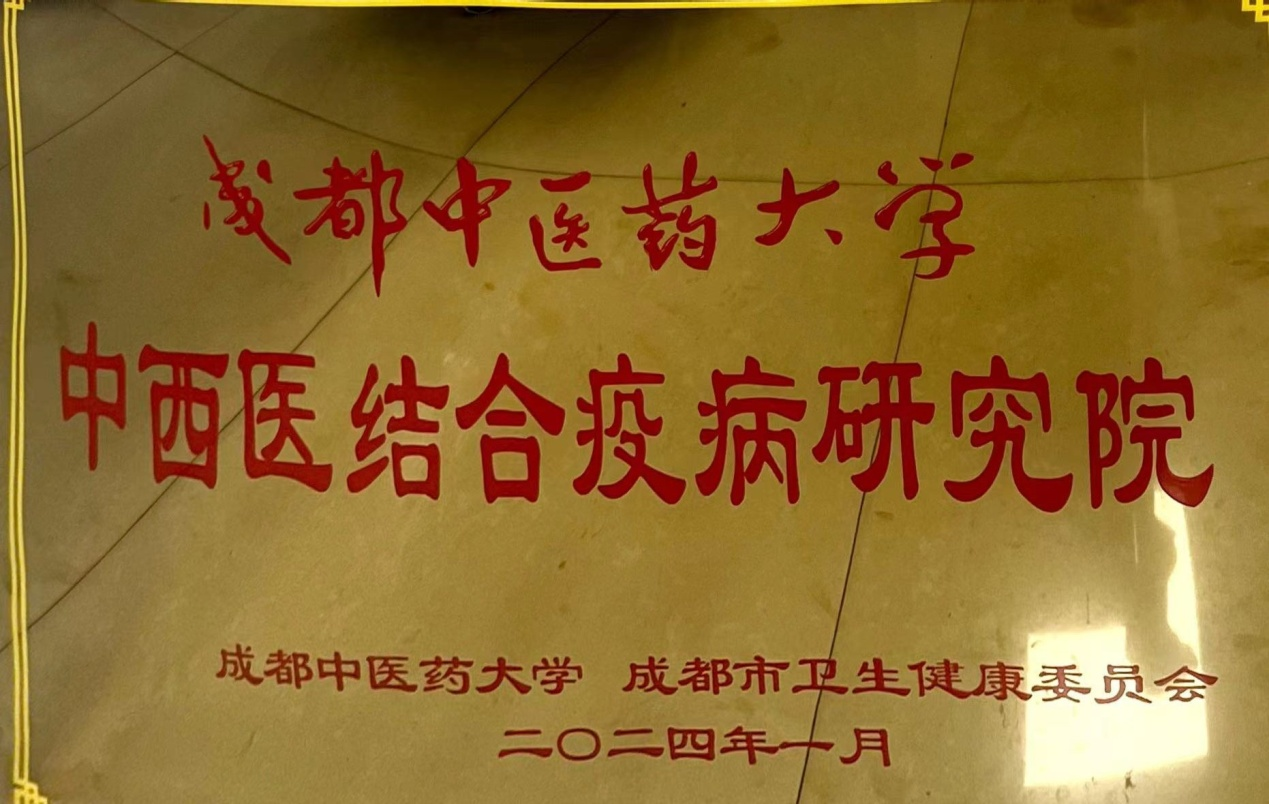 成都中医药大学
中西医结合疫病研究院
成都中医药大学 成都市卫生健康委员会
二〇二四年一月